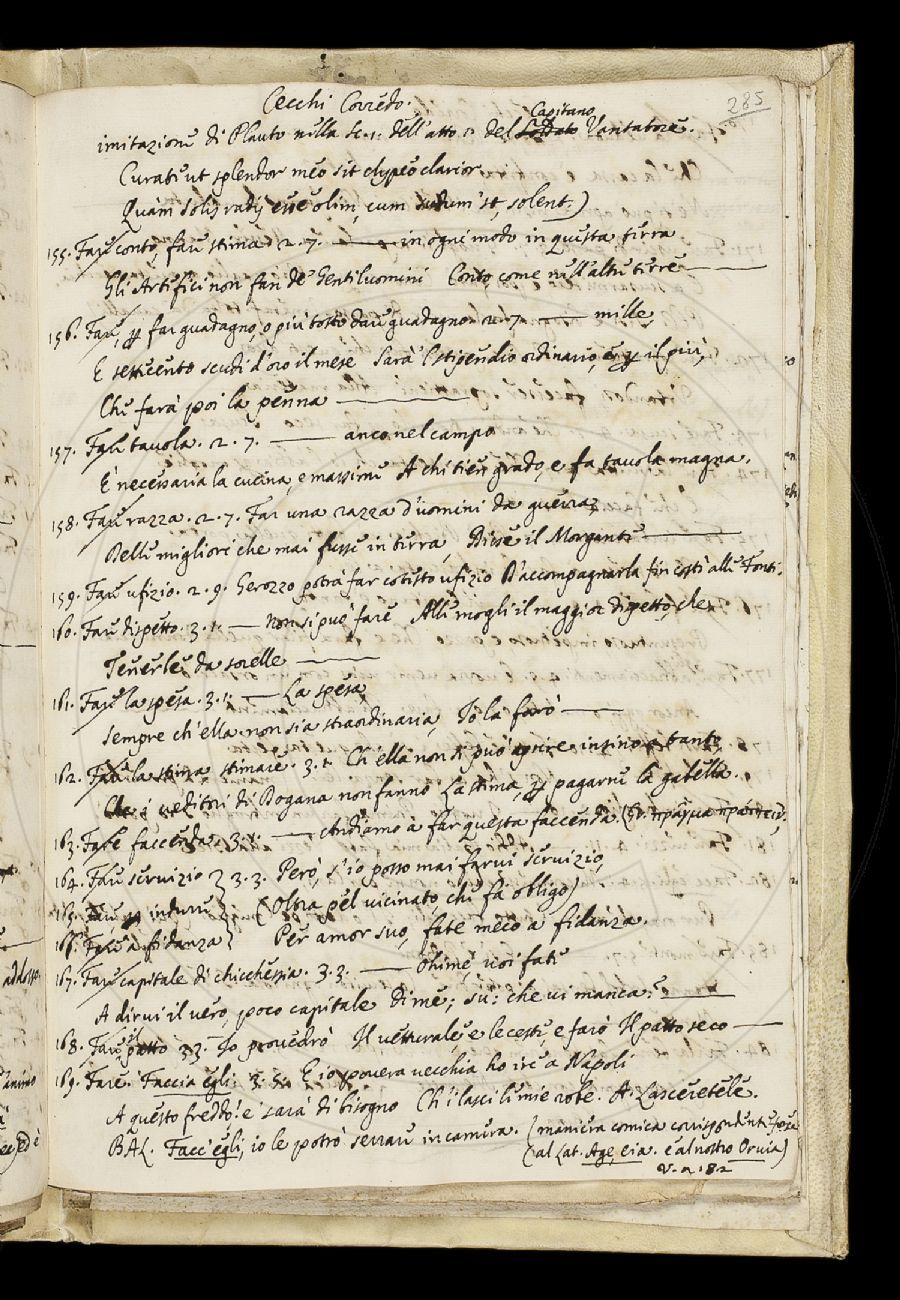 285
Cecchi Corredo.
Capitano
imitazione di Plauto nella sc. 1. dell'atto 1. del Soldato Vantatore.
Curate ut splendor meo sit clypeo clarior
Quam Solis radij esse olim, cum sudum 'st, solent.)
155. Fare conto, fare stima. 2. 7. —— in ogni modo in questa terra
Gli Artifici non fan de' Gentiluomini Conto, come nell'altre terre ——
156. Fare, ꝑ far guadagno, o più tosto dare guadagno. 2. 7. —— mille,
E settecento scudi d'oro il mese Sarà l stipendio ordinario, e ꝑ il più,
Che farà poi la penna ——
157. Fare tavola. 2. 7. —— anco nel campo
È necessaria la cucina, e massime A chi tien grado, e fa tavola magna.
158. Fare razza. 2. 7. Far una razza d'uomini da guerra,
Belli migliori che mai fusse in terra, Disse il Morgante ——
159. Fare ufizio. 2. 9. Gerozzo potrà far cotesto ufizio D'accompagnarla fin costì alle Fonti.
160. Fare dispetto. 3. 1. —— non si può fare Alle mogli il maggior dispetto, che
Tenerle da sorelle ——
161. Fare la spesa. 3. 1. —— La spesa,
Sempre ch'ella non sia straordinaria, Io la farò ——
162. Fare la stima stimare. 3. 1. Ch'ella non si può aprire insino a tanto,
Che i veditori di Dogana non fanno La stima, ꝑ pagarne la gabella.
163. Fare faccenda. 3. 1. —— Andiamo a far questa faccenda (Gr. πρᾶγμα πράττειν,
164. Fare servizio } 3. 3. Però, s'io posso mai farvi servizio,
165. Fare ꝑ (Oltra pel vicinato, che fa obligo)
166. Fare a fidanza } Per amor suo, fate meco a fidanza.
167. Fare capitale di chicchessia. 3. 3. —— Ohimè, voi fate
A dirvi il vero, poco capitale Di me; su: che vi manca? ——
168. Fare il patto 3. 3. Io provedrò Il vetturale e le ceste, e farò Il patto seco ——
169. Fare. Faccia egli. 3. 5. E io povera vecchia ho ire a Napoli
A questo freddo! e sarà di bisogno Ch'i' lasci le mie robe. A. Lasceretele.
BAL. Facc'egli, io le potrò serrare in camera. (maniera comica corrispondente forse
(al Lat. Age, eia. e al nostro Orvia)
v. n. 182